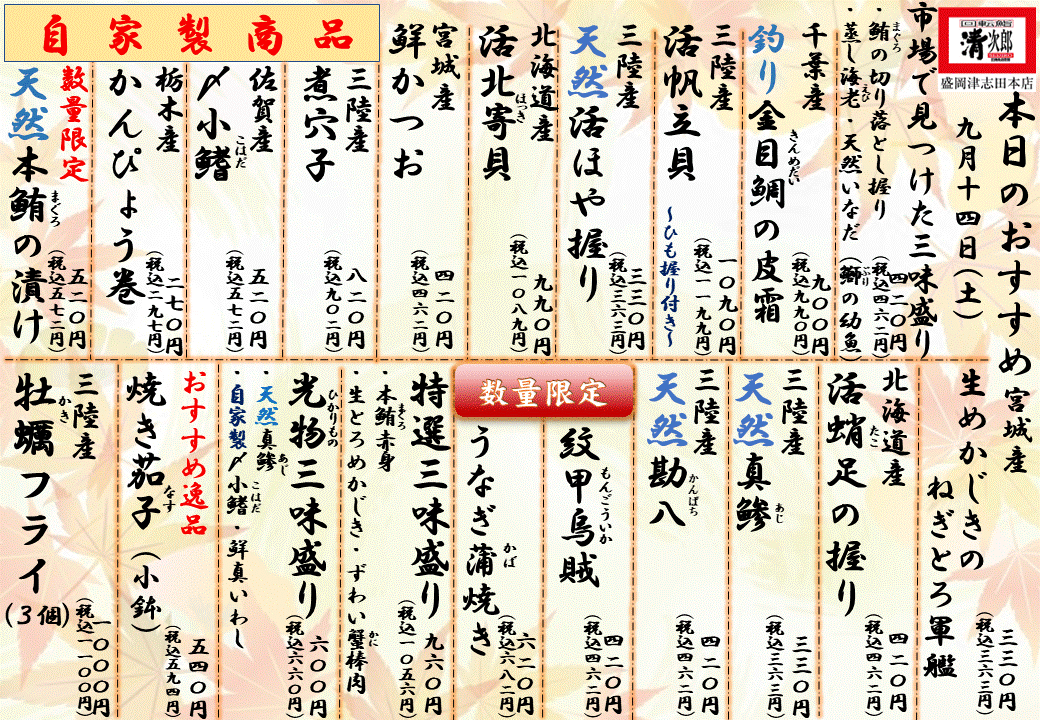 回転鮨
清次郎
盛岡津志田本店
本日のおすすめ
九月十四日(土)
市場で見つけた三味盛り
・鮪の切り落とし握り
まぐろ
・蒸し海老・天然いなだ(鰤の幼魚)
えび
ぶり
四二〇円
(税込四六二円)
千葉産
釣り金目鯛の皮霜
きんめだい
九〇〇円
(税込九九〇円)
三陸産
活帆立貝
~ひも握り付き~
一〇九〇円
(税込一一九九円)
三陸産
天然活ほや握り
三三〇円
(税込三六三円)
北海道産
活北寄貝
ほっき
九九〇円
(税込一〇八九円)
宮城産
鮮かつお
四二〇円
(税込四六二円)
自家製商品
三陸産
煮穴子
八二〇円
(税込九〇二円)
佐賀産
〆小鰭
こはだ
五二〇円
(税込五七二円)
栃木産
かんぴょう巻
二七〇円
(税込二九七円)
数量限定
天然本鮪の漬け
まぐろ
五二〇円
(税込五七二円)
宮城産
生めかじきの
ねぎとろ軍艦
三三〇円
(税込三六三円)
北海道産
活蛸足の握り
たこ
四二〇円
(税込四六二円)
三陸産
天然真鯵
あじ
三三〇円
(税込三六三円)
三陸産
天然勘八
かんぱち
四二〇円
(税込四六二円)
数量限定
紋甲烏賊
もんごういか
四二〇円
(税込四六二円)
うなぎ蒲焼き
かば
六二〇円
(税込六八二円)
特選三味盛り
・本鮪赤身
まぐろ
・生とろめかじき・ずわい蟹棒肉
かに
九六〇円
(税込一〇五六円)
光物三味盛り
ひかりもの
・天然真鯵
あじ
・自家製〆小鰭・鮮真いわし
こはだ
六〇〇円
(税込六六〇円)
おすすめ逸品
焼き茄子(小鉢)
なす
五四〇円
(税込五九四円)
三陸産
牡蠣フライ(3個)
かき
一〇〇〇円
(税込一一〇〇円)